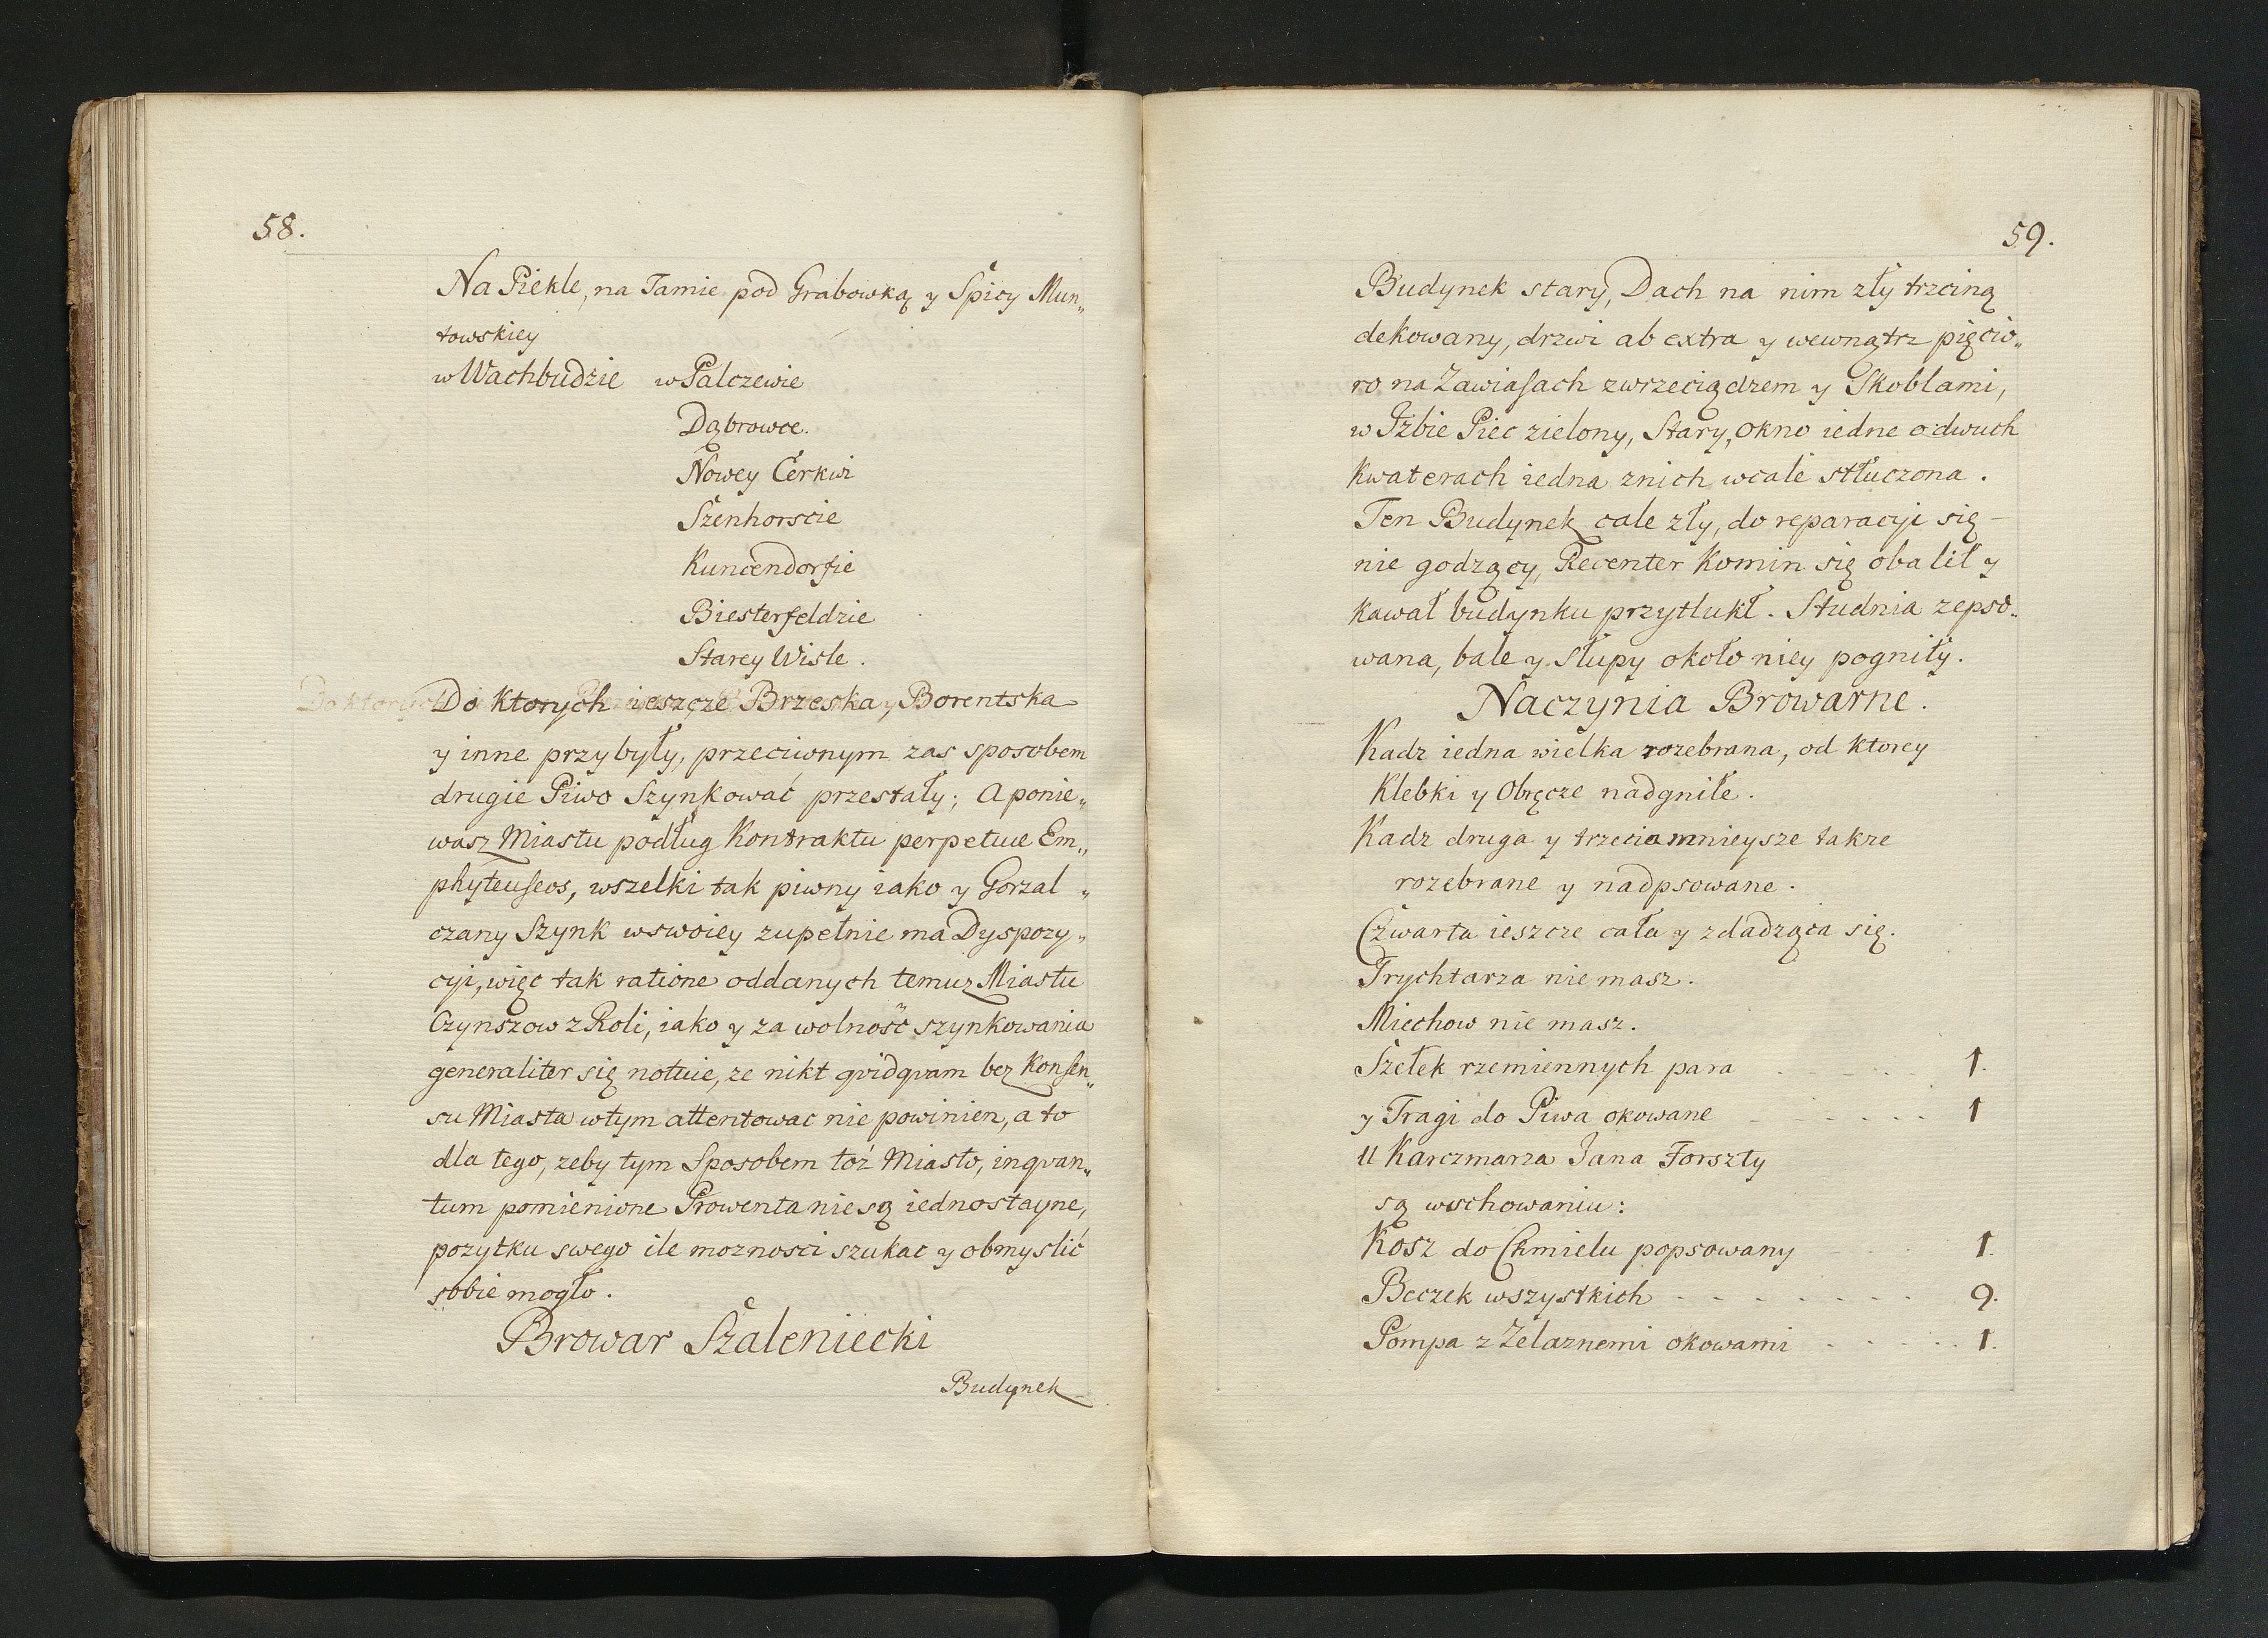 58.
Na Piekle, na Tamie pod Grabowką y Spicy Mun„
towskiey
w Wachbudzie w Palczewie
Dąbrowce.
Nowey Cerkwi
Szenhorscie
Kuncendorfie
Biesterfeldzie
Starey Wisle.
Do ktorych ieszcze Brzeska y Borentska
y inne przybyły, przeciwnym zas sposobem
drugie Piwo Szynkować przestały; A ponie„
wasz Miastu podług Kontraktu perpetuæ Em„
phyteuseos, wszelki tak piwny iako y Gorzal„
czany Szynk w swoiey zupełnie ma Dyspozy„
cyi, więc tak ratione oddanych temuz Miastu
Czynszow z Roli, iako y za wolność szynkowania
generaliter się notuie, ze nikt qvidqvam bez Konsen„
su Miasta w tym attentowac nie powinien, a to
dla tego, zeby tym Sposobem toż Miasto, inqvan„
tum pomienione Prowenta nie są iednostayne,
pozytku swego ile moznosci szukac y obmyslić
sobie mogło.
Browar Szaleniecki
Budynek
59.
Budynek stary, Dach na nim zły trzciną
dekowany, drzwi ab extra y wewnątrz pięcio„
ro na Zawiasach z wrzeciądzem y Skoblami,
w Izbie Piec zielony, Stary, okno iedne o dwuch
Kwaterach iedna z nich wcale stłuczona.
Ten Budynek cale zły, do reparacyi się
nie godzący, Recenter Komin się obalił y
kawał budynku przytlukł. Studnia zepso„
wana, bale y Słupy około niey pogniły.
Naczynia Browarne.
Kadz iedna wielka rozebrana, od ktorey
Klebki y Obręcze nadgniłe.
Kadz druga y trzecia mnieysze takze
rozebrane y nadpsowane.
Czwarta ieszcze cała y zdadząca się.
Trychtarza nie masz.
Miechow nie masz.
Szełek rzemiennych para - - - - - 1.
y Tragi do Piwa okowane - - - - - 1
U Karczmarza Jana Forszty
są w schowaniu:
Kosz do Chmielu popsowany - - - 1.
Beczek wszystkich - - - - - - - - 9.
Pompa z Zelaznemi okowami - - - - - 1.